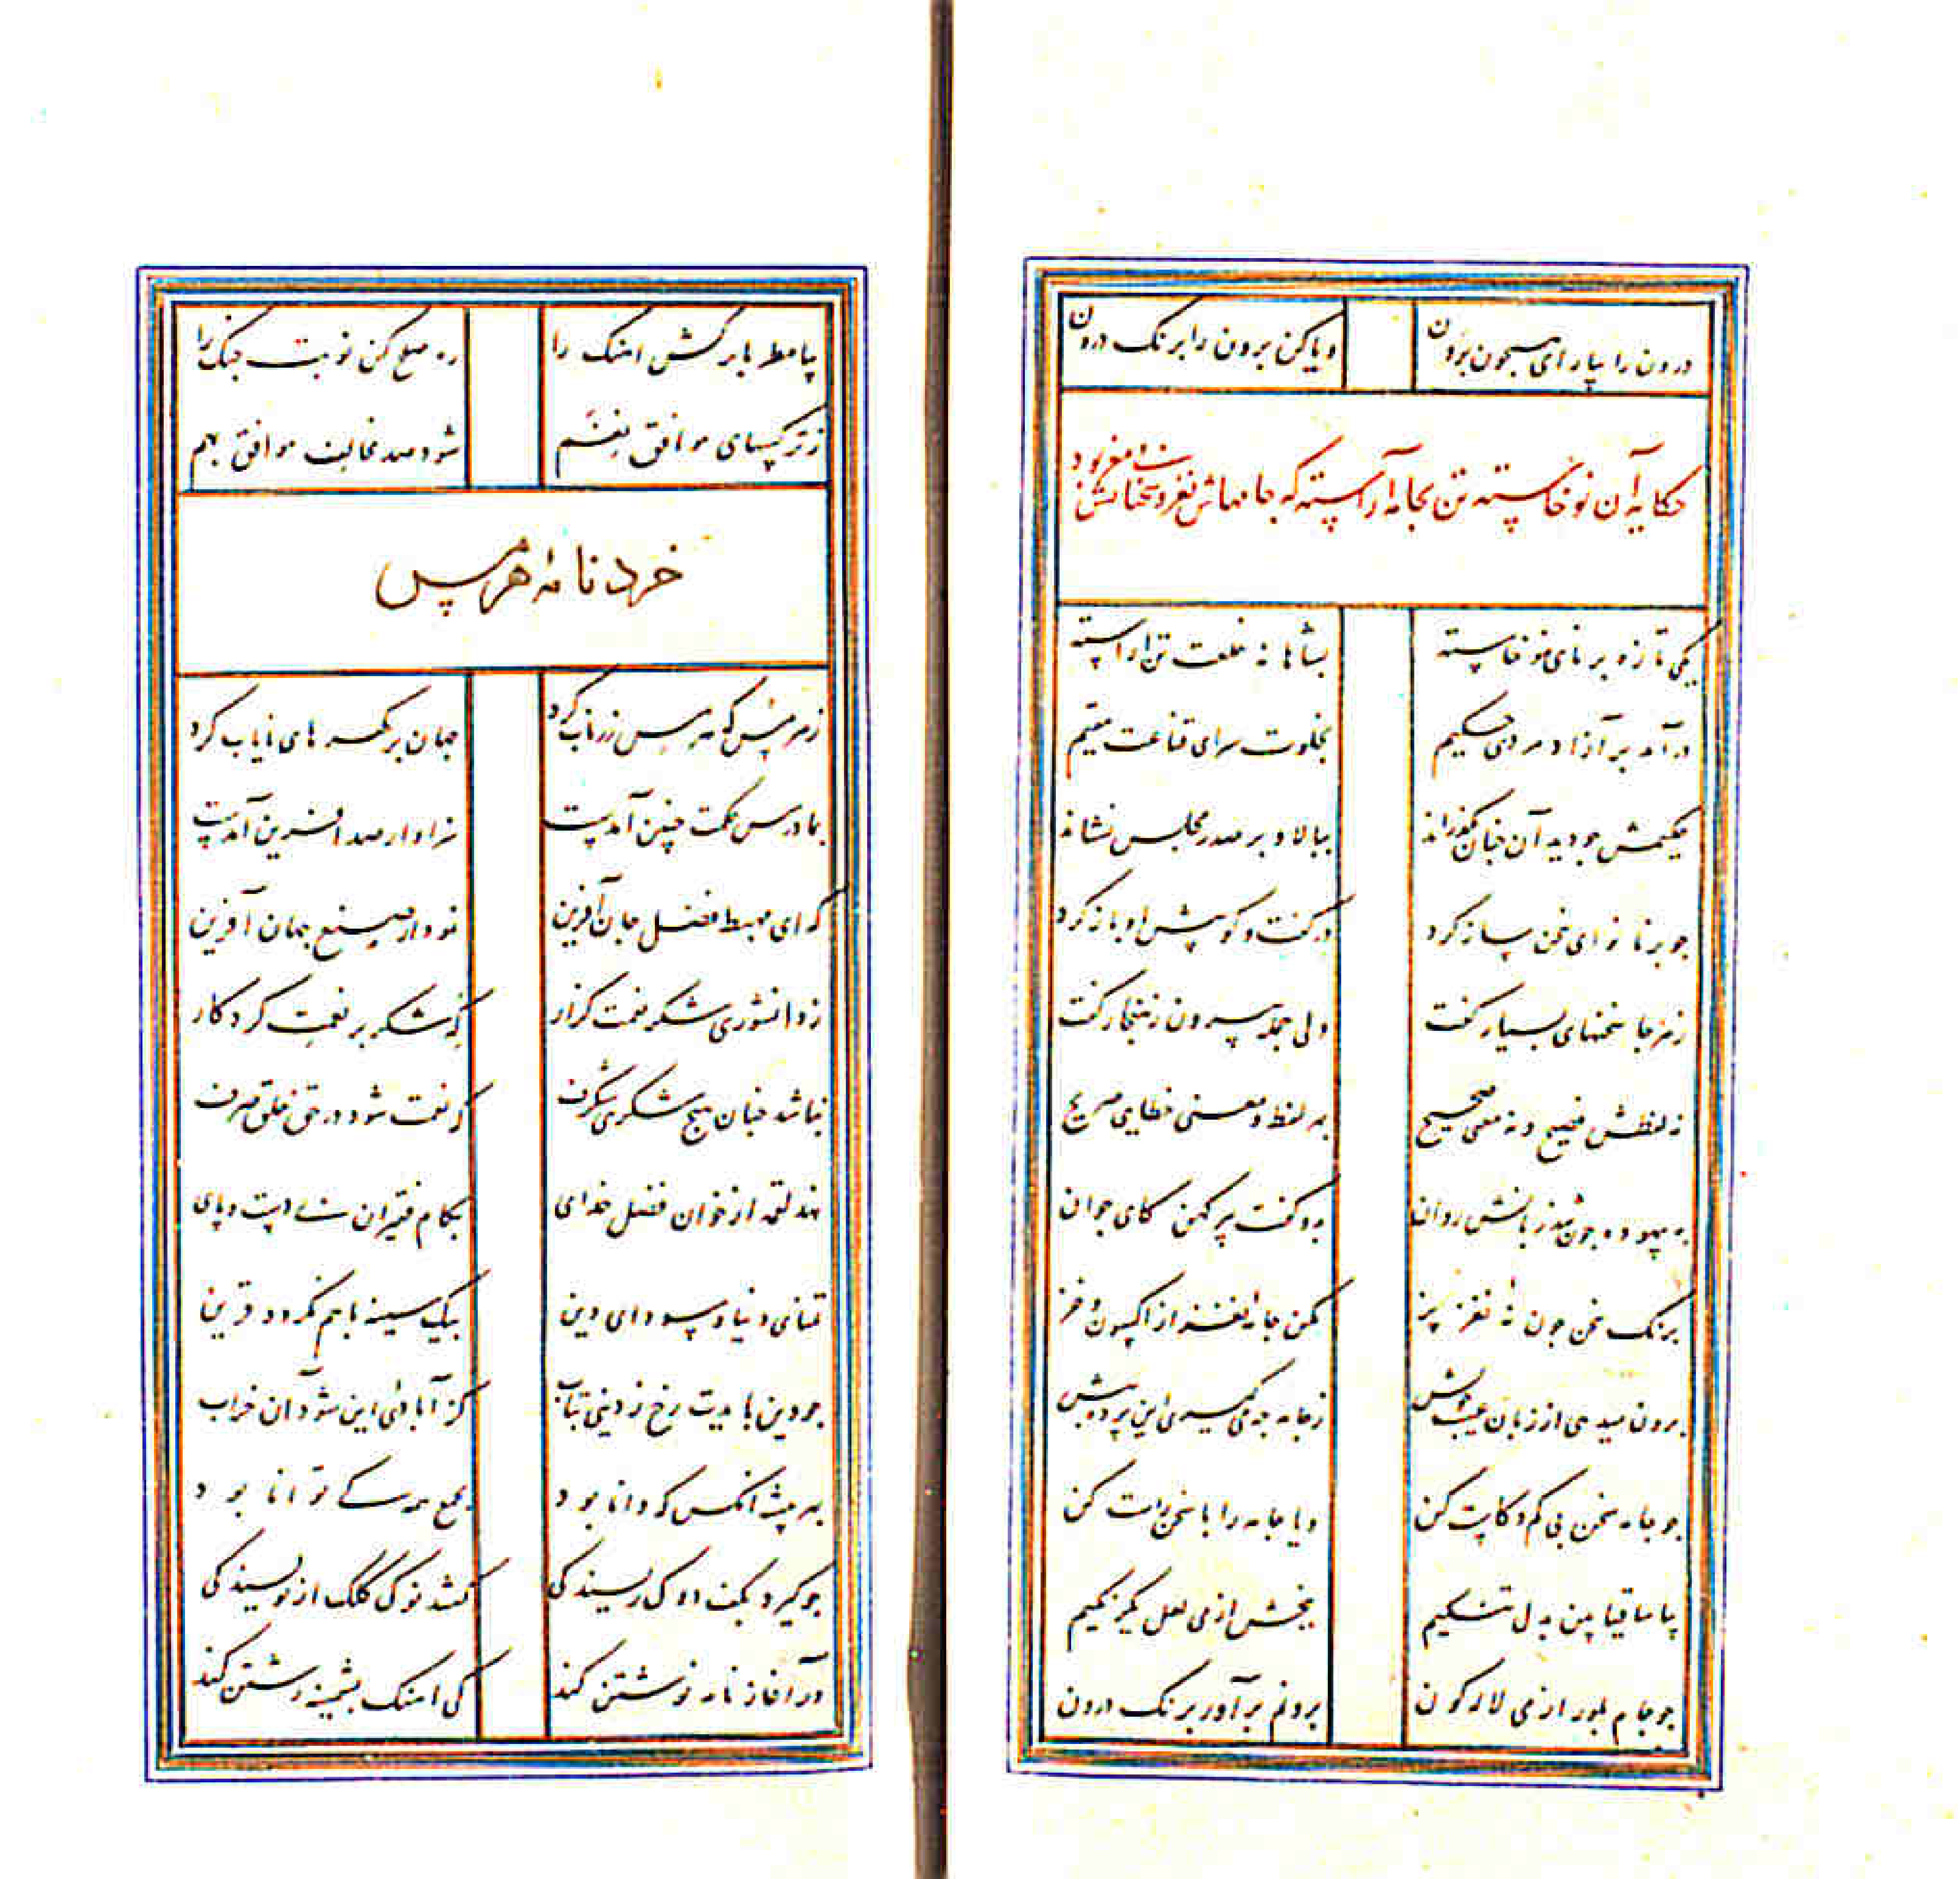 درون را بیارای همچون برون ویا کن برون را برنک درون
حکایة آن نوخاسته تن بجامه آراسته که جامهاش نغز و سخنانش نامغز بود
یکی تازه برنای نوخاسته بشاهانه خلعت تن آراسته
درآمد بر آزاد مردی حکیم بخلوت سرای قناعت مقیم
حکیمش جو دید آن جنان بکذراند ببالا و بر صدر مجلس نشاند
جو برنا نوای سخن ساز کرد در کفت و کو پیش او باز کرد
ز هر جا سخنهای بسیار کفت ولی جمله بیرون ز هنجار کفت
نه لفظش فصیح و نه معنی صحیح به لفظ و معنی خطایی صریح
به بیهوده جون شد زبانش روان بدو کفت پیر کهن کای جوان
برنک سخن جون نه نغز نیز مکن جامه نغز از اکسون و خز
برون میدهی از زبان عیب خویش ز جامه جه می کیری این پرده پیش
جو جامه سخن بی کم و کاست کن ویا جامه را با سخن راست کن
بیا ساقیا بین بدل تنکیم ببخش از می لعل یکرنکیم
جو جام بلور از می لاله کون برونم برآور برنک درون
بیا مطربا برکش اهنک را ره صلح کن نوبت جنک را
ز ترکیبهای موافق نغم شود صد مخالف موافق بهم
خردنامه هرمس
ز هرمس که هرمس زر ناب کرد جهان پر کهرهای نایاب کرد
بما درس حکمت جنین آمدست سزاوار صد آفرین آمدست
که ای مهبط فضل جان آفرین نمودار صنع جهان آفرین
ز دانشوری شکر نعمت کزار که شکر بر نعمت کردکار
نباشد جنان هیج شکری شکرف که نعمت شود در حق خلق صرف
نهد لقمه از خوان فضل خدای بکام فقیران بی دست و پای
تمنای دنیا و سودای دین بیک سینه با هم نکردد قرین
جو دین بایدت رخ ز دنیی بتاب کز آبادی این شود آن خراب
بهر پیشه آنکس که دانا بود بجمع همه کی توانا بود
جو کیرد بکف دوک ریسندکی کشد نوک کلک از نویسندکی
در آغاز نامه نوشتن کند کی اهنک پشمینه رشتن کند